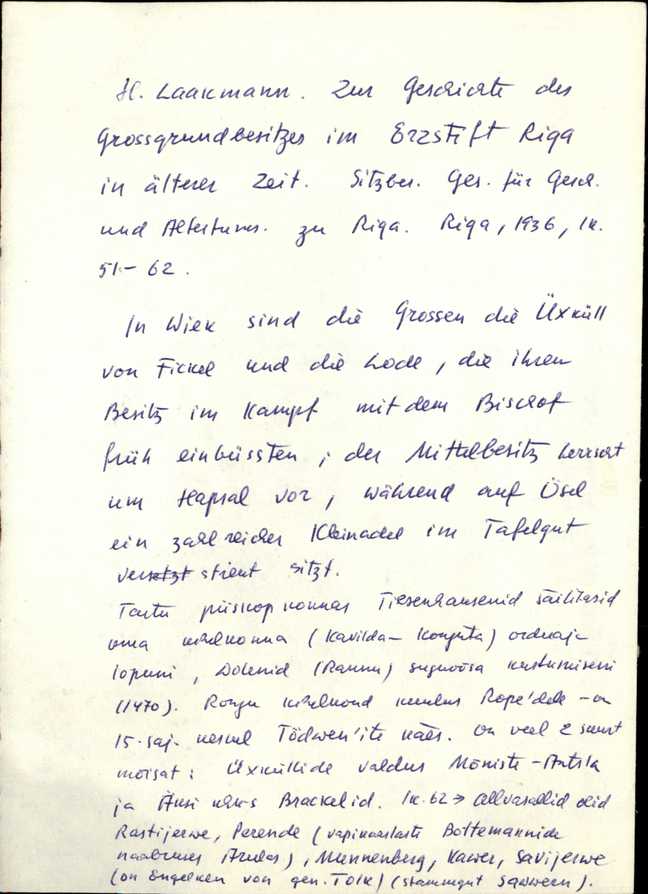 H. Laakmann. Zur Geschichte des
Grossgrundbesitzes im Erzstift Riga
in älterer Zeit. Sitzber. Ges. für Gesch.
und Altertums. zu Riga. Riga, 1936, lk.
51-62.
In Wiek sind die Grossen die Üxküll
von Fickel und die Lode, die ihren
Besitz im Kampf mit dem Bischof
früh einbüssten; der Mittelbesitz herrscht
um Hapsal vor, während auf Ösel
ein zahlreicher Kleinadel im Tafelgut
versetzt stient sitzt.
Tartu piiskopkonnas Tiesenhausenid säilitasid
oma kihelkonna (Kavilda-Konguta) orduaja
lopuni, Dolenid (Rannu) suguvõsa kustumiseni
(1470). Rongu kihelkond kuulus Rope'dele - on
15. saj. keskel Tödwen'ite käes. On veel 2 suurt
moisat: Üxküllide valdus Mõniste-Antsla
ja Brackelid. lk. 62 → allvasallid olid
Rastijerwe, Perende (vapikaaslaste Boltemannide
naabruses), Munnenberg, Kawer, Savijerwe
(on Engelken von gen. Tolk) (stammgut Sawwern).